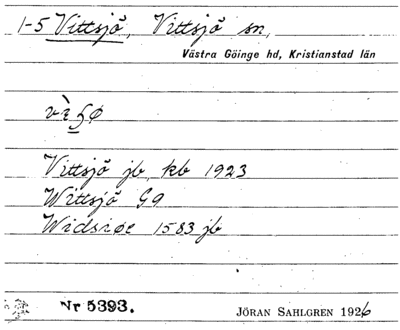 1-5 Vittsjö, Vittsjö sn,
Västra Göinge hd, Kristianstad län
Vittsjö jb, kb 1923
Wittsjö G9
Widsiøe 1583 jb
Nr 5393.
JÖRAN SAHLGREN 1926